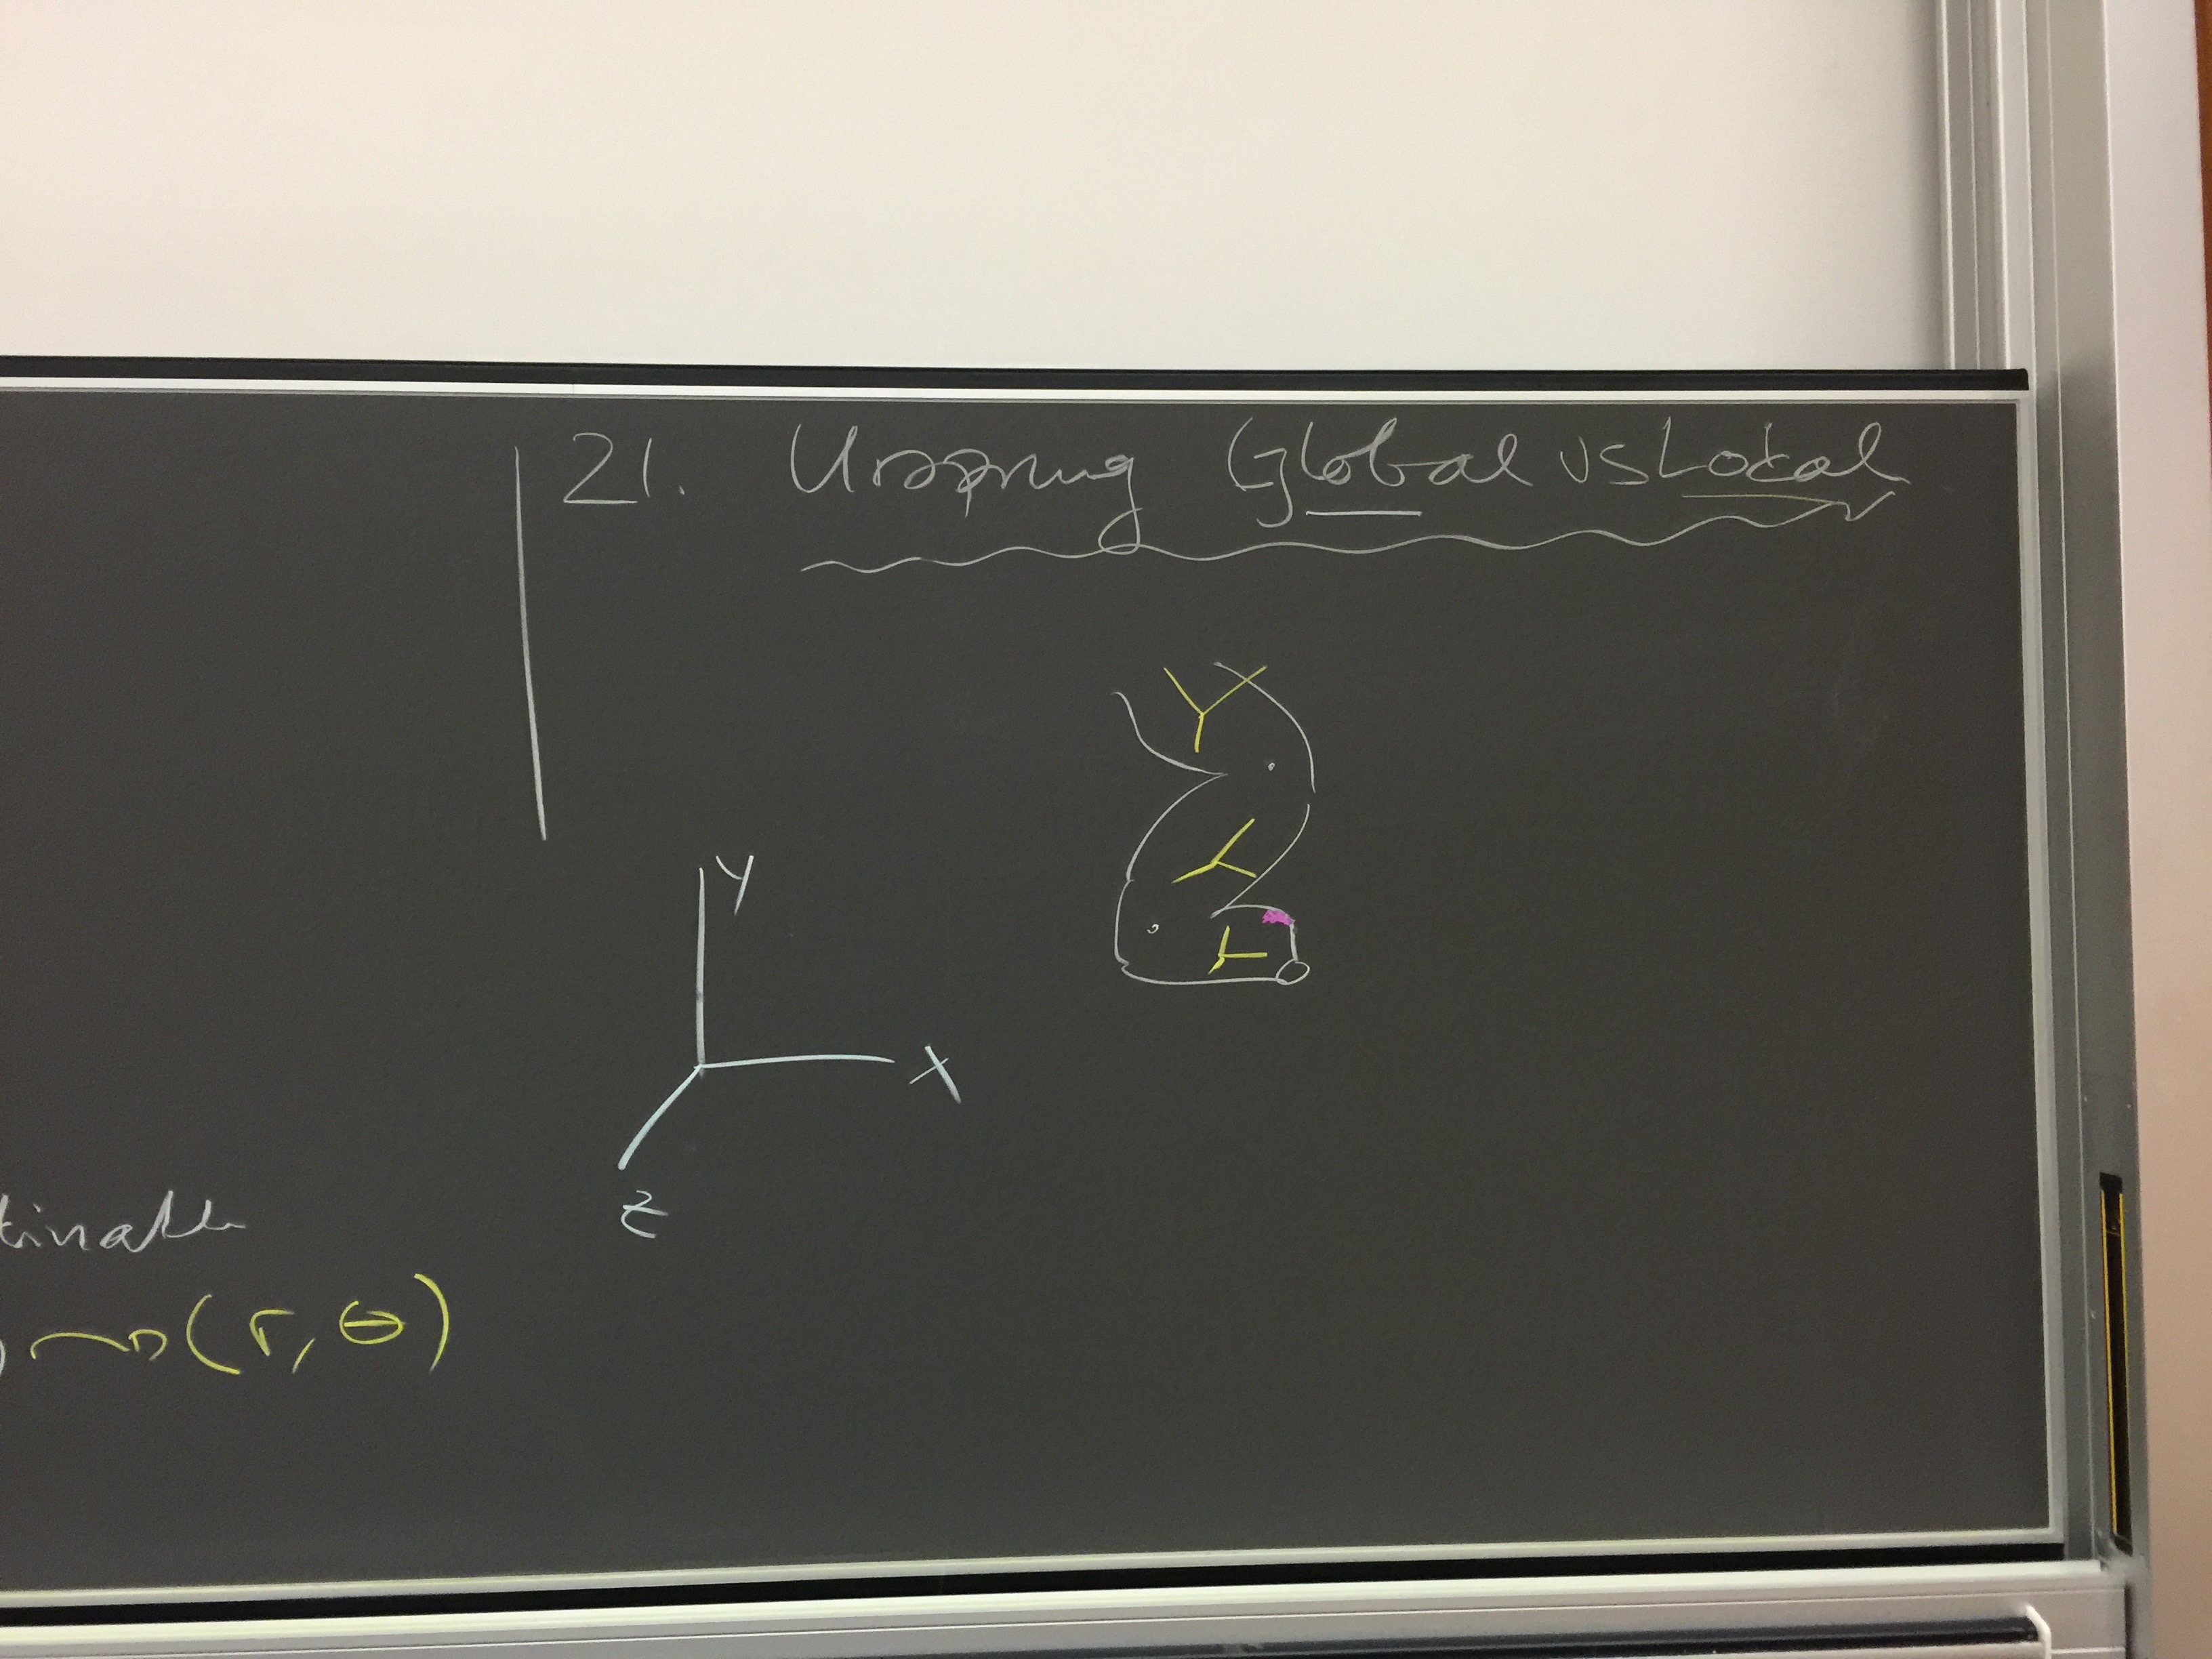 21. Ursprung Global vs Lokal
Y
X
Z
(r, θ)